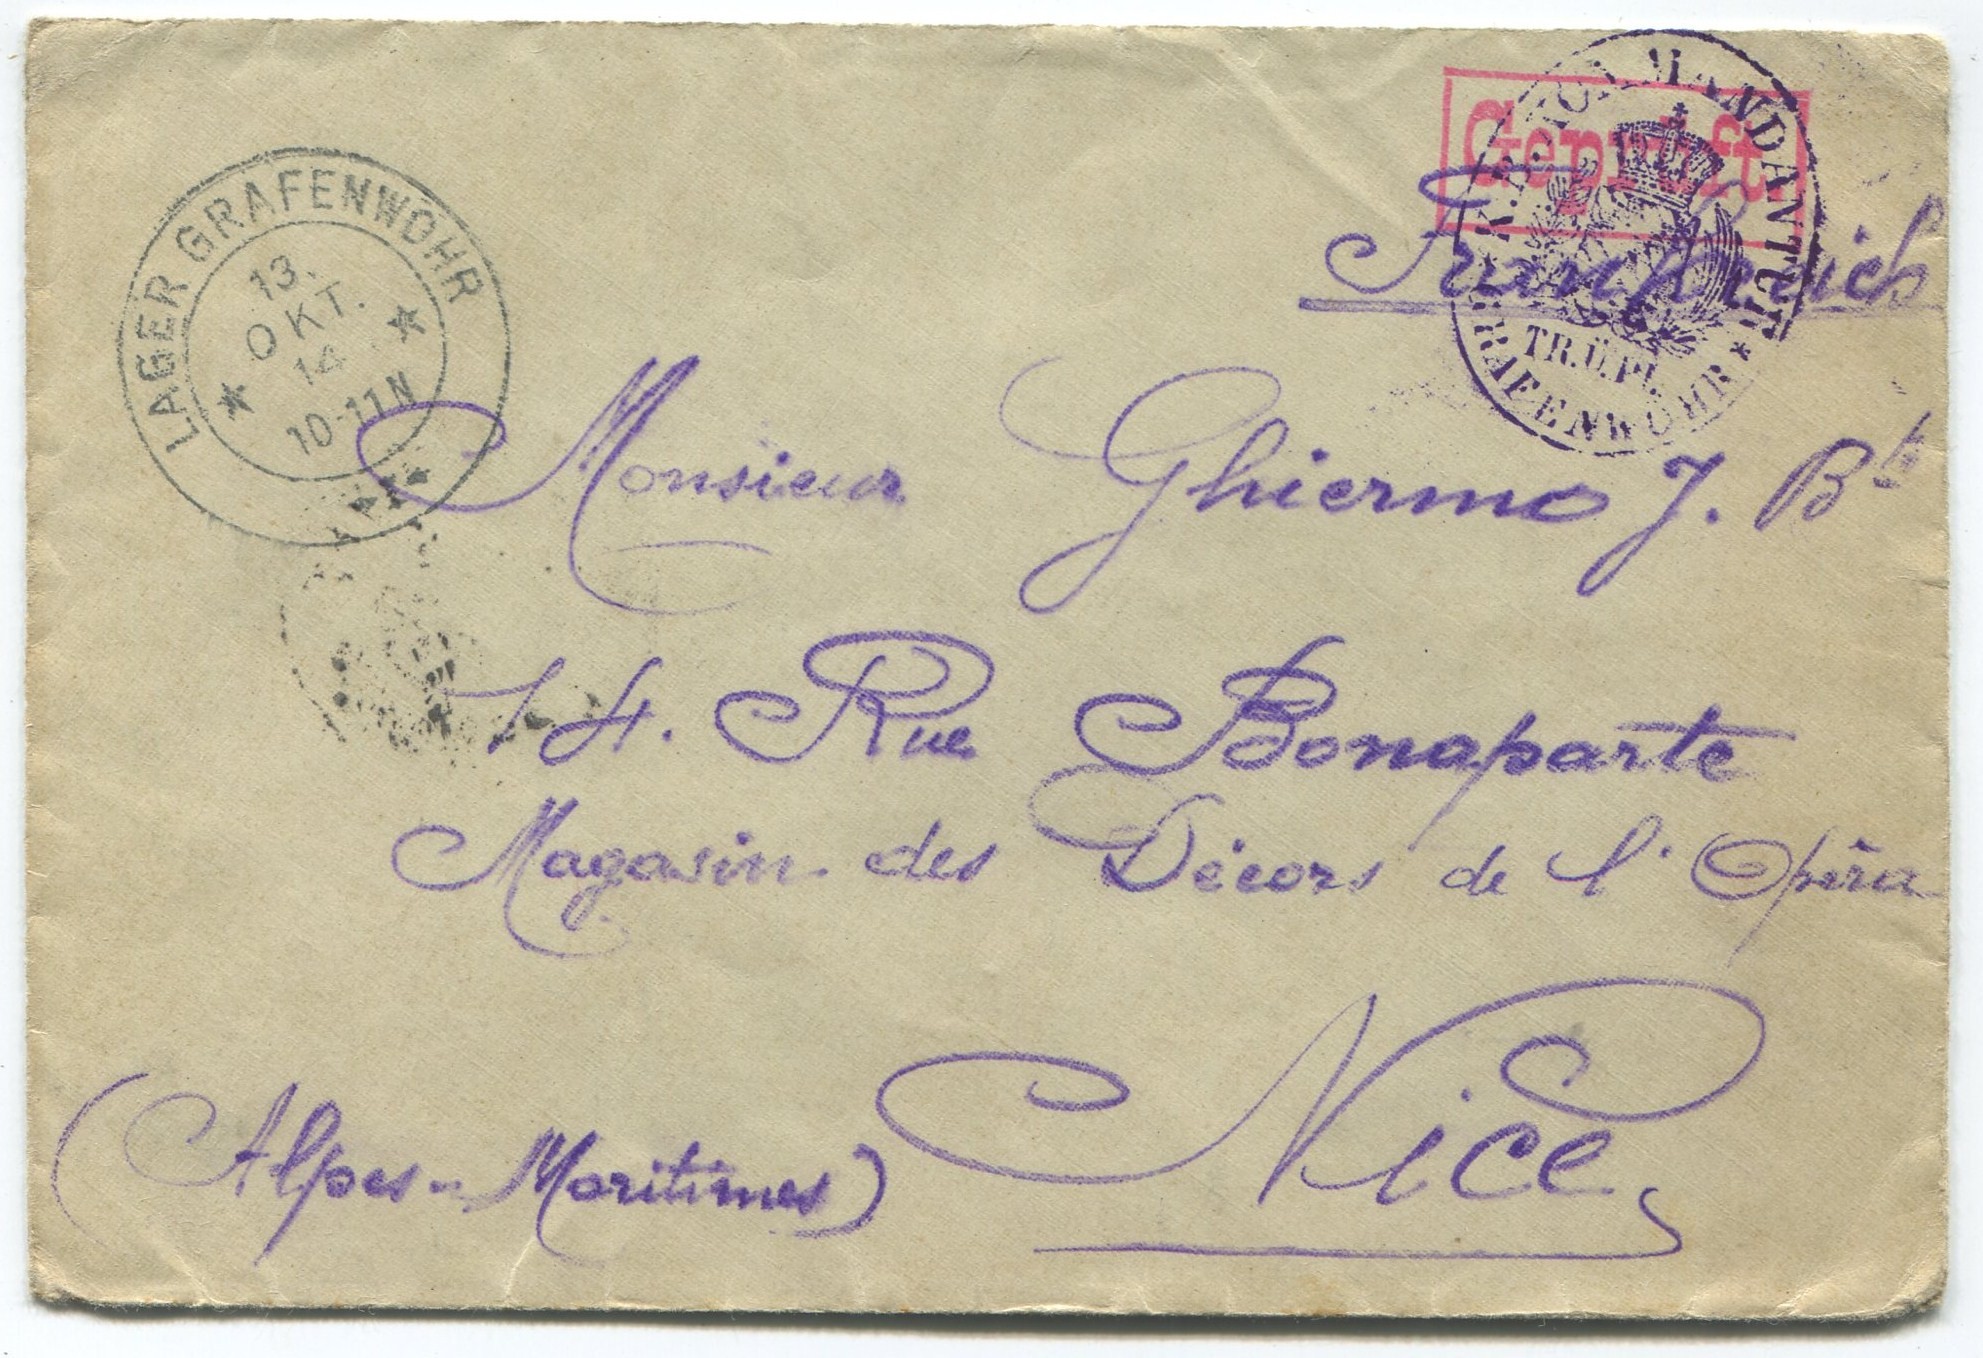 LAGER GRAFENWÖHR
13.
OKT.
14
10-11N
Geprüft
K.B. KOMMANDANTUR
TR.Ü.PL.
GRAFENWÖHR
Frankreich
Monsieur Ghiermo J. Bte
14. Rue Bonaparte
Magasin des Décors de l'Opéra
(Alpes-Maritimes) Nice